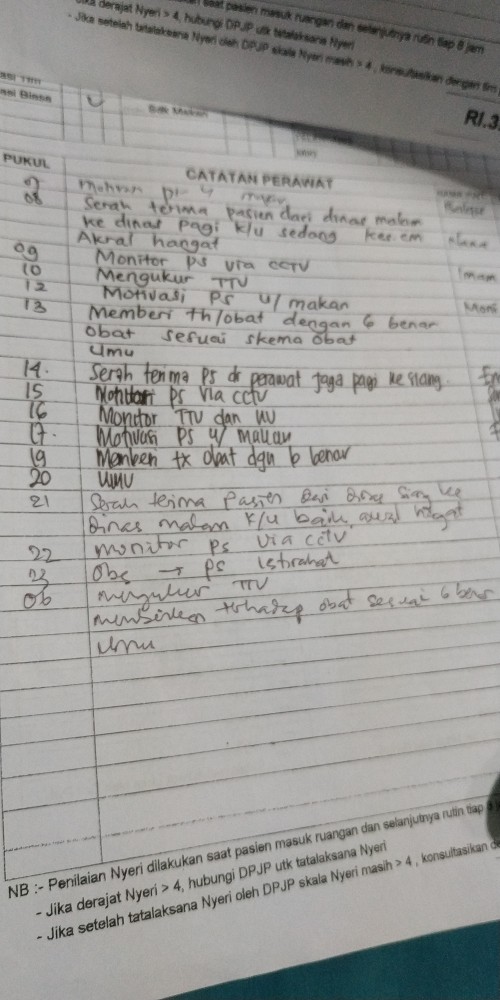 saat pasien masuk ruangan dan selanjutnya rutin tiap 8 jam
Jika derajat Nyeri > 4, hubungi DPJP utk tatalaksana Nyeri
- Jika setelah tatalaksana Nyeri oleh DPJP skala Nyeri masih > 4 , konsultasikan dengan tim
RI.3
PUKUL CATATAN PERAWAT
08 Serah terima pasien dari dinas malam
ke dinas pagi k/u sedang kes. cm
Akral hangat
09 Monitor ps via CCTV
10 Mengukur TTV
12 Motivasi PS u/ makan
13 Memberi th/obat dengan 6 benar
obat sesuai skema obat
umu
14. Serah terima ps dr perawat jaga pagi ke siang.
15 ps via cctv
16 Monitor TTV dan UU
17. Motivasi PS u/ makan
19 Memberi tx obat dgn 6 benar
20 UMU
21 Serah terima Pasien Dari Dinas siang ke
Dinas malam k/u baik, akral hangat
22 monitor ps via cctv
23 Obs → ps istirahat
06 mengukur TTV
memberikan terhadap obat sesuai 6 benar
Umu
NB :- Penilaian Nyeri dilakukan saat pasien masuk ruangan dan selanjutnya rutin tiap
- Jika derajat Nyeri > 4, hubungi DPJP utk tatalaksana Nyeri
- Jika setelah tatalaksana Nyeri oleh DPJP skala Nyeri masih > 4 , konsultasikan